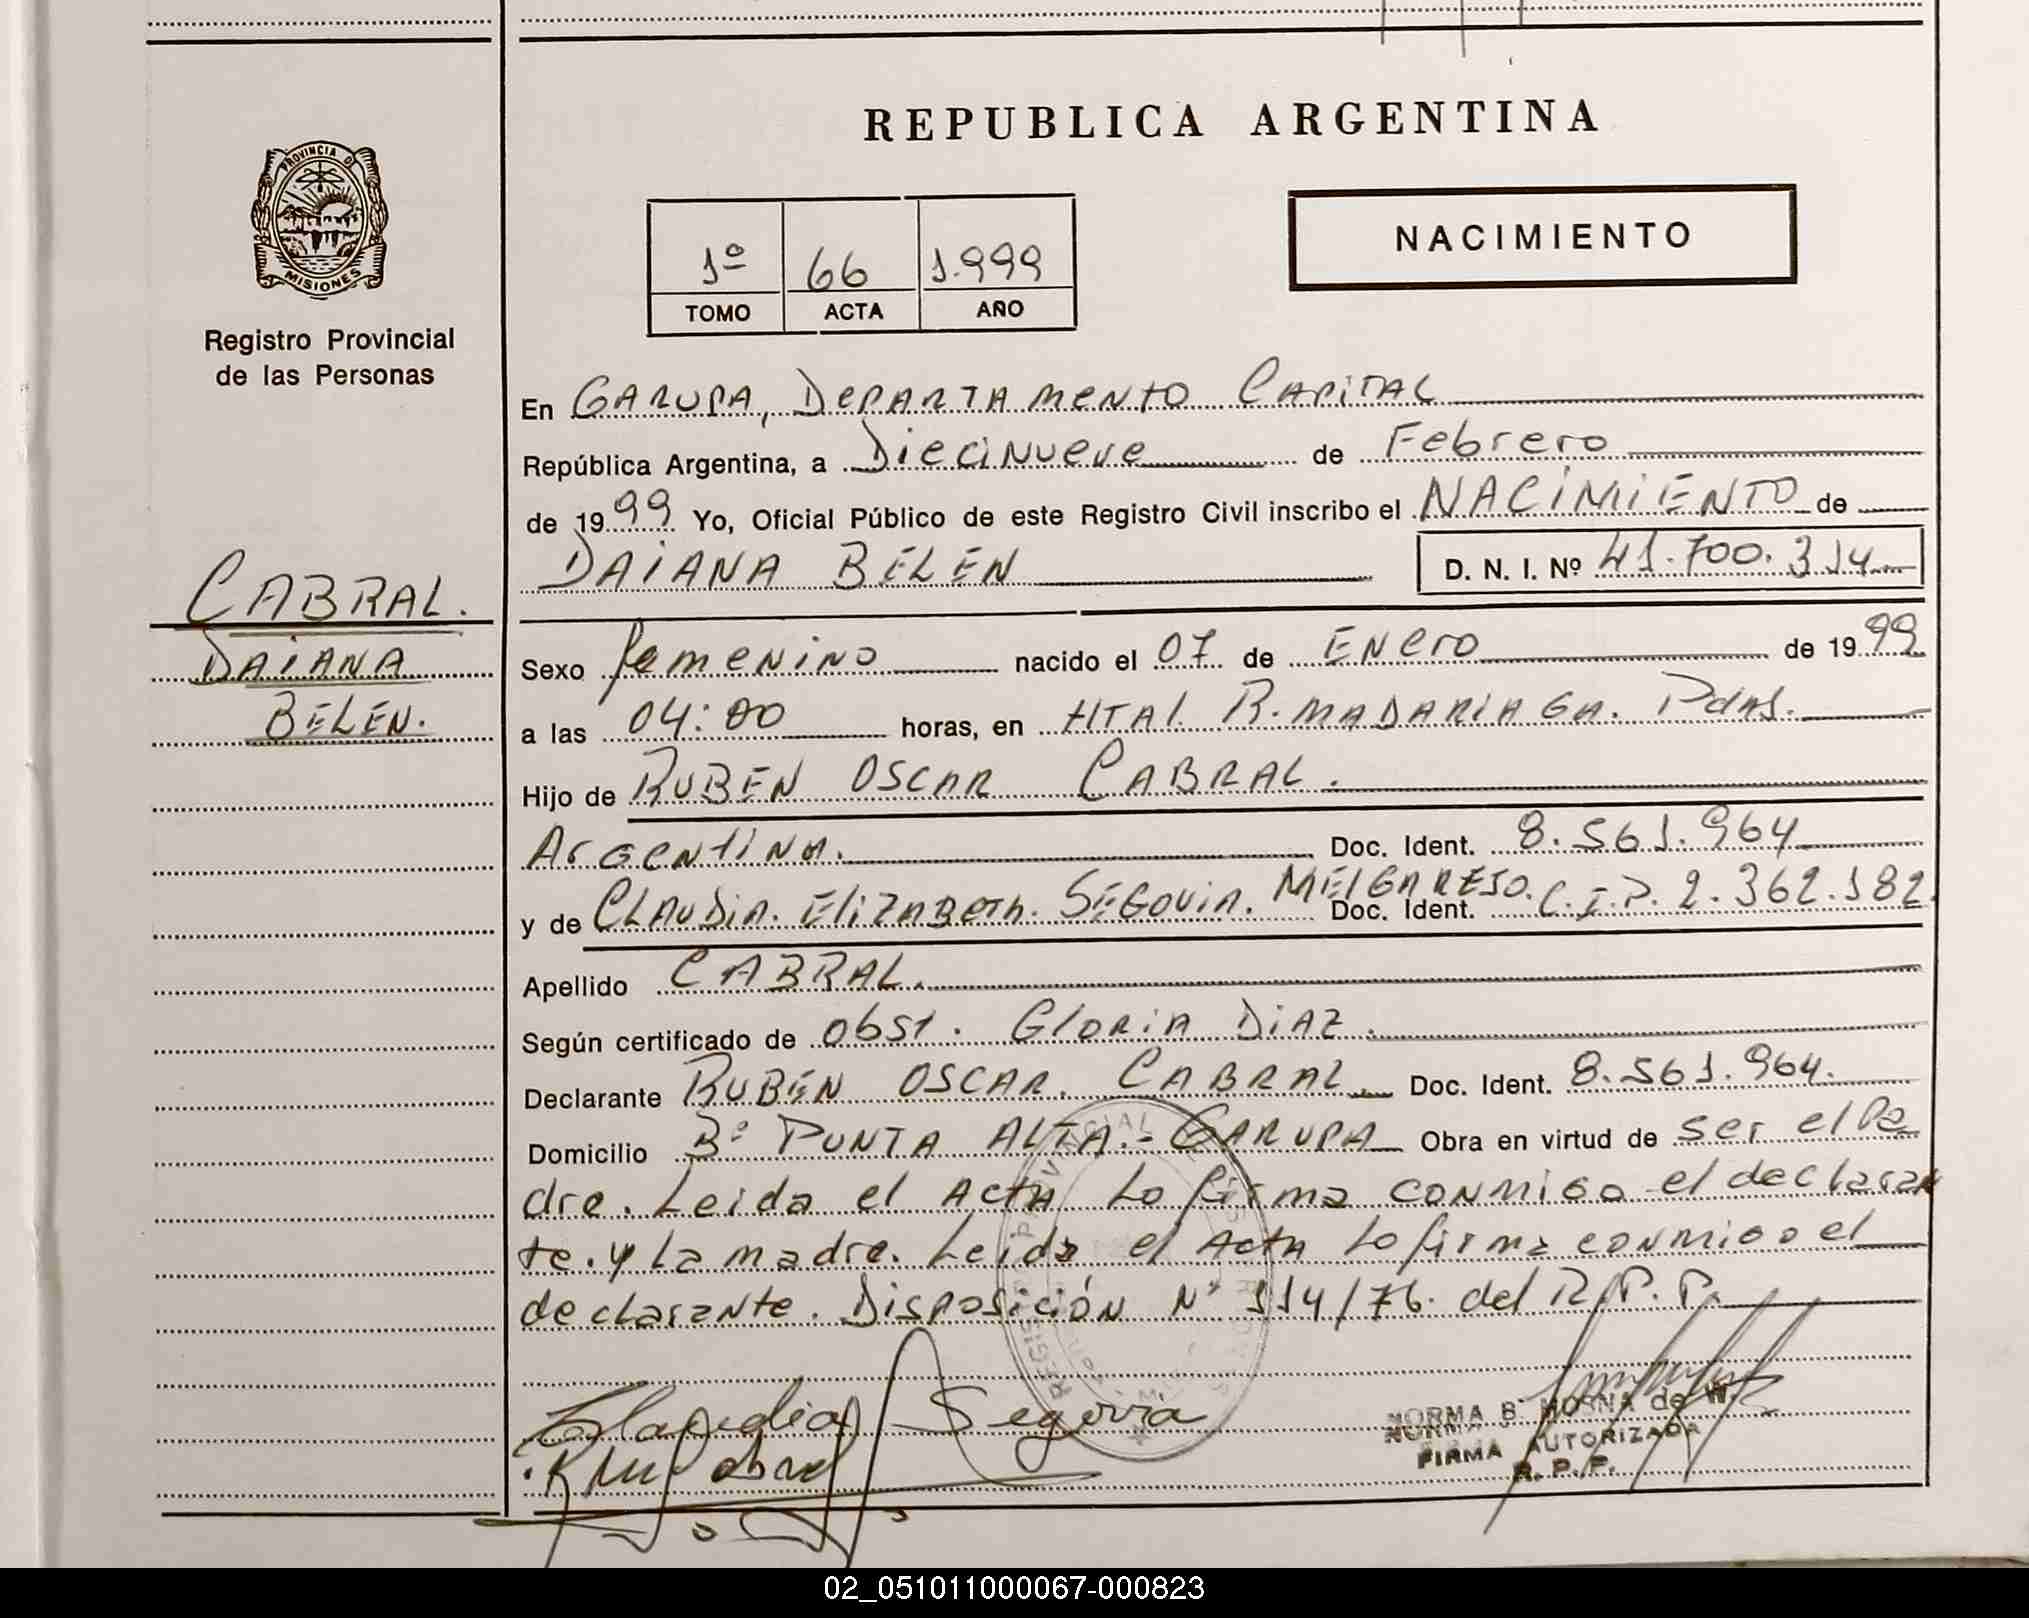 REPUBLICA ARGENTINA
PROVINCIA DE
MISIONES
Registro Provincial
de las Personas
1º 66 1.999
TOMO ACTA AÑO
NACIMIENTO
CABRAL.
DAIANA
BELEN.
En GARUPA, DEPARTAMENTO CAPITAL
República Argentina, a Diecinueve de Febrero
de 1999 Yo, Oficial Público de este Registro Civil inscribo el NACIMIENTO de
DAIANA BELEN D. N. I. Nº 41.700.314
Sexo femenino nacido el 07 de ENero de 1999
a las 04:00 horas, en HTAl. R. MADARIAGA. Pdas.
Hijo de RUBEN OSCAR CABRAL.
Argentina. Doc. Ident. 8.561.964
y de CLAUDIA. ElizABETH. SEGOVIA. MELGAREJO. Doc. Ident. C.I.P. 2.362.182.
Apellido CABRAL.
Según certificado de obst. Gloria DIAZ.
Declarante RUBEN OSCAR. CABRAL Doc. Ident. 8.561.964.
Domicilio Bº PUNTA ALTA.- GARUPA Obra en virtud de ser el Pa
dre. Leida el Acta Lo firma conmigo el declaran
te. y La madre. Leida el Acta Lo firma conmigo el
declarante. Disposición Nº 114/76. del R.P.P.
Claudia Segovia
NORMA B. de W.
FIRMA AUTORIZADA
R. P. P.
02_051011000067-000823